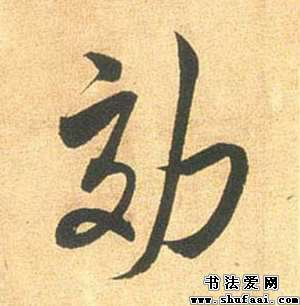 効
书法爱网
www.shufaai.com